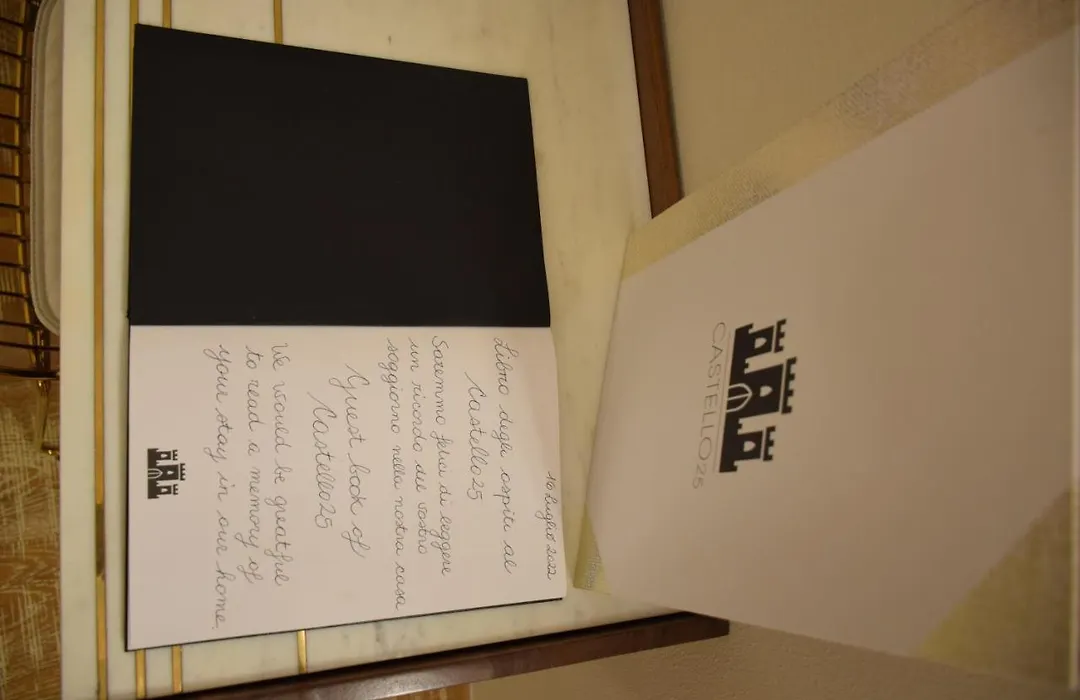 10 Luglio 2022
Libro degli ospiti al
Castello25
Saremmo felici di leggere
un ricordo del vostro
soggiorno nella nostra casa
Guest book of
Castello25
We would be greatful
to read a memory of
your stay in our home.
CASTELLO25